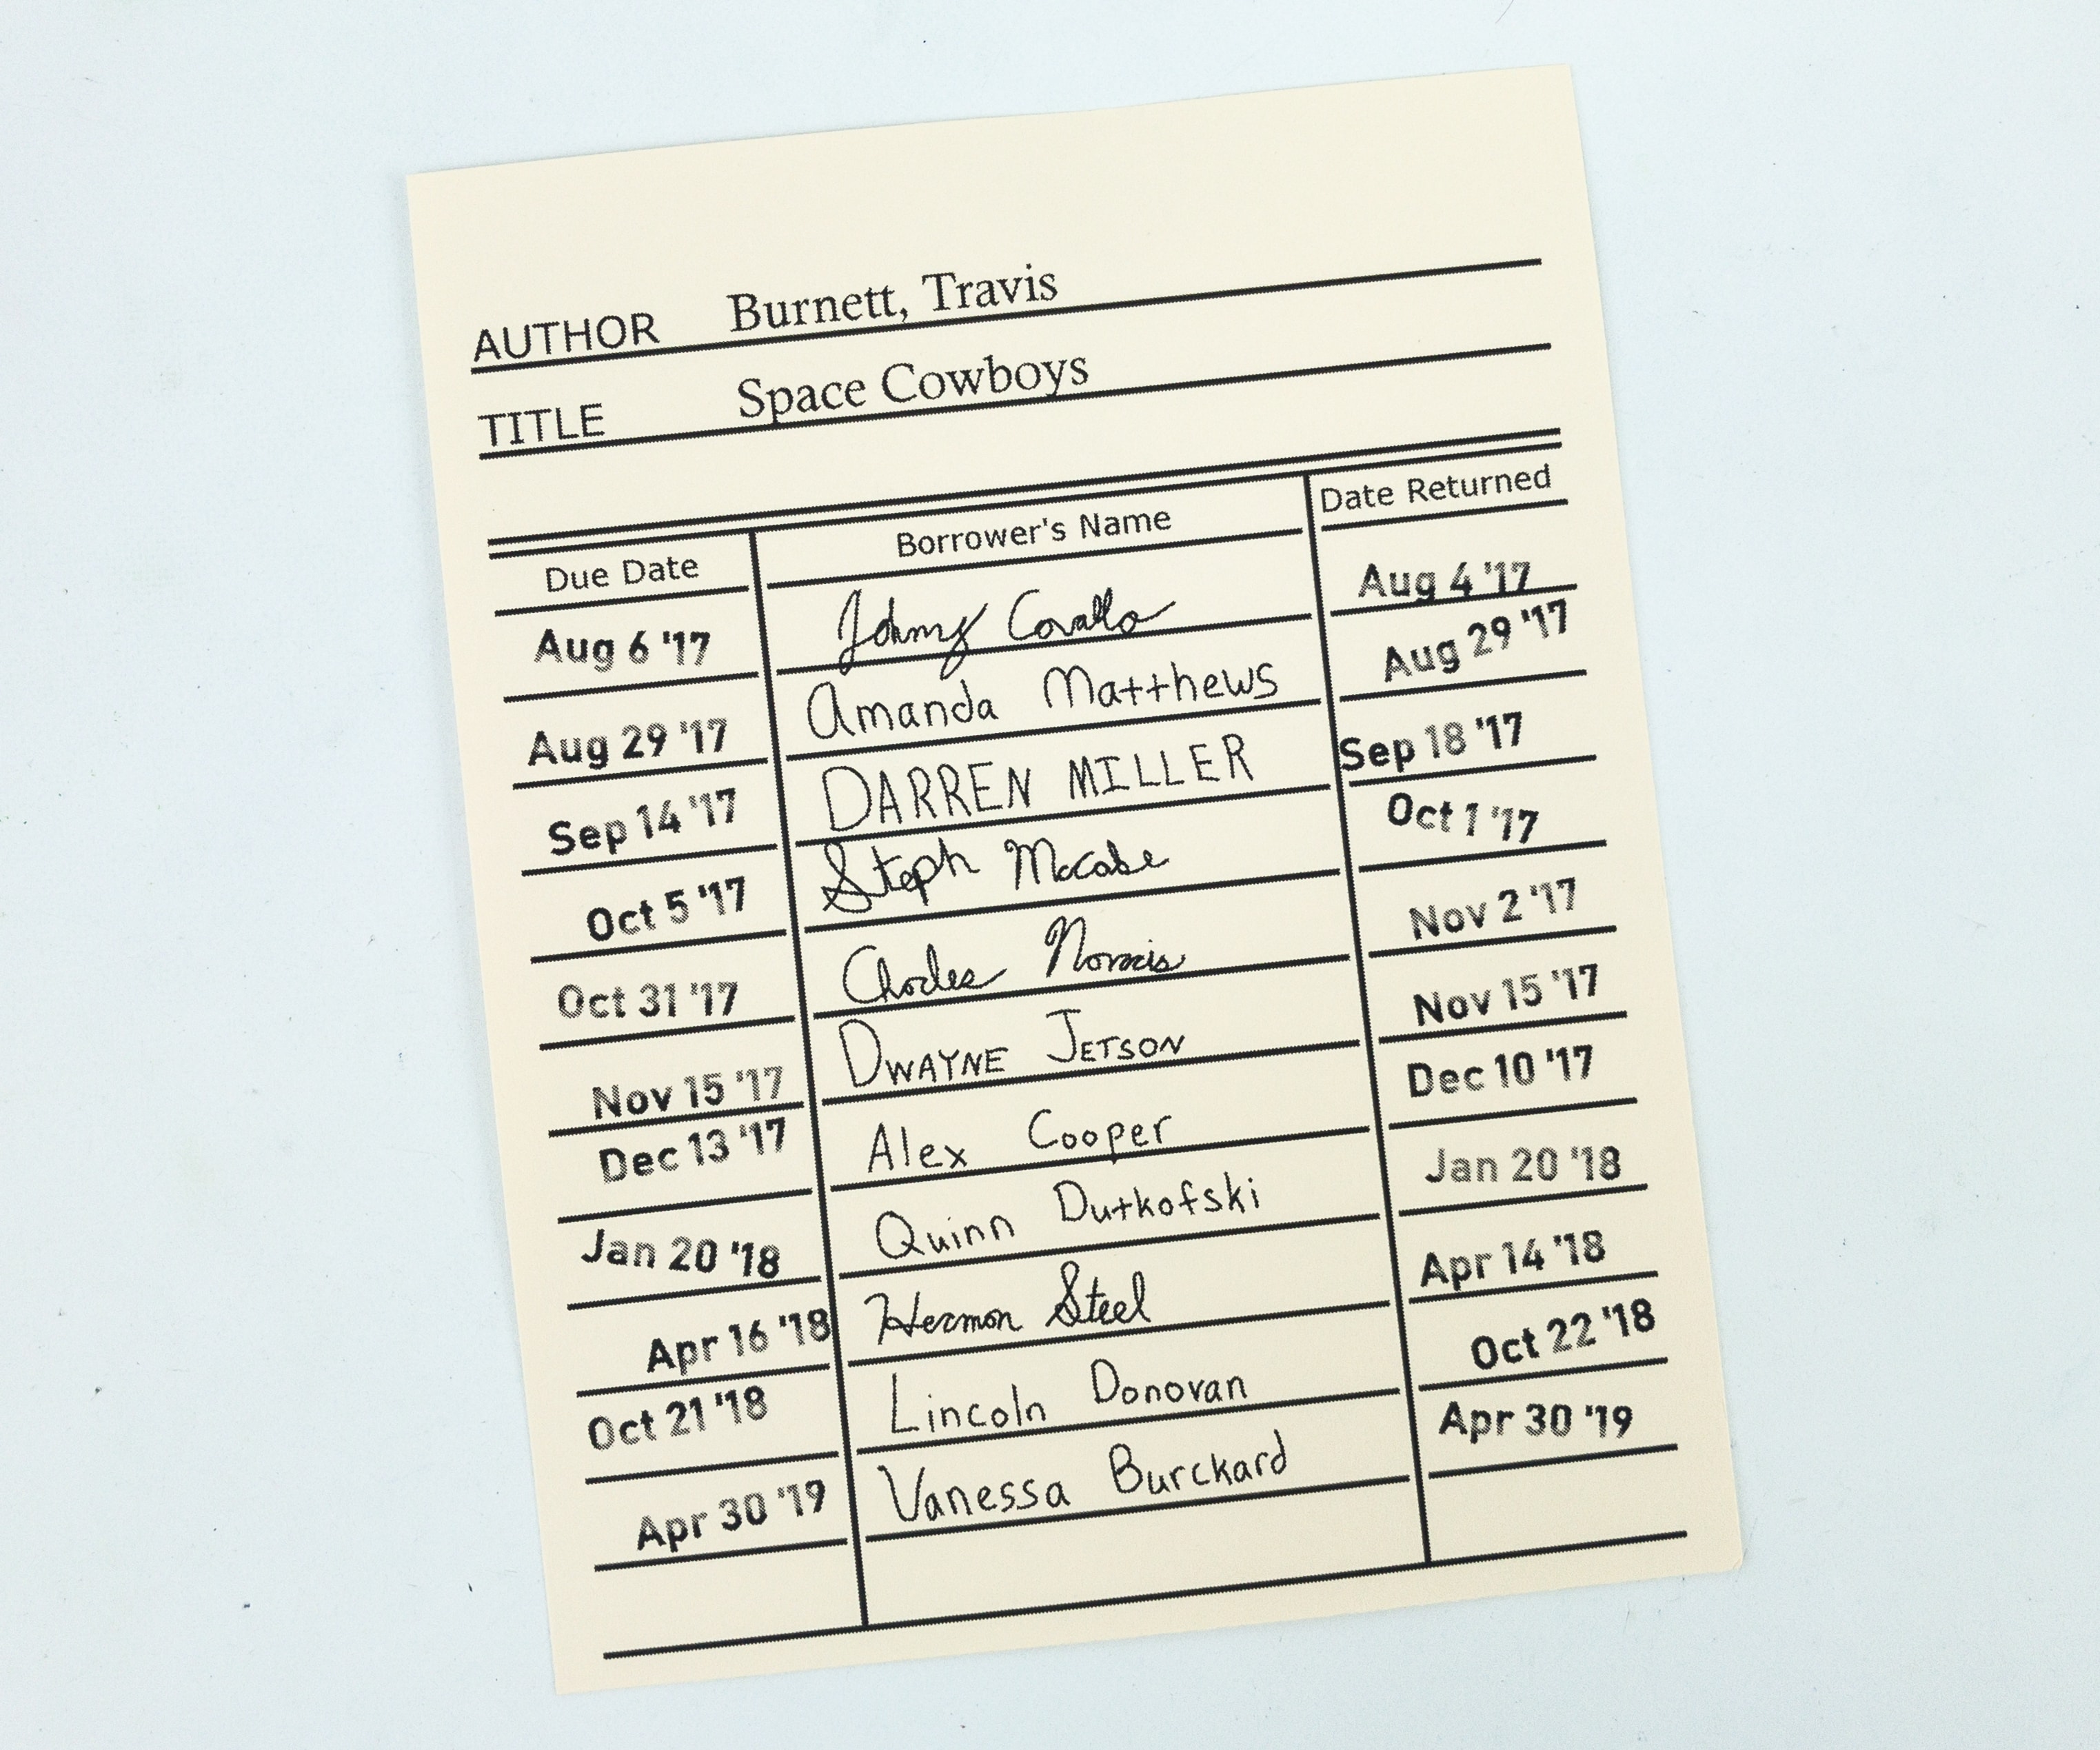 AUTHOR Burnett, Travis
TITLE Space Cowboys
Due Date Borrower's Name Date Returned
Aug 6 '17 Johnny Covallo Aug 4 '17
Aug 29 '17 Amanda Matthews Aug 29 '17
Sep 14 '17 DARREN MILLER Sep 18 '17
Oct 5 '17 Steph McCabe Oct 1 '17
Oct 31 '17 Charles Norris Nov 2 '17
Nov 15 '17 DWAYNE JETSON Nov 15 '17
Dec 13 '17 Alex Cooper Dec 10 '17
Jan 20 '18 Quinn Dutkofski Jan 20 '18
Apr 16 '18 Hermon Steel Apr 14 '18
Oct 21 '18 Lincoln Donovan Oct 22 '18
Apr 30 '19 Vanessa Burckard Apr 30 '19